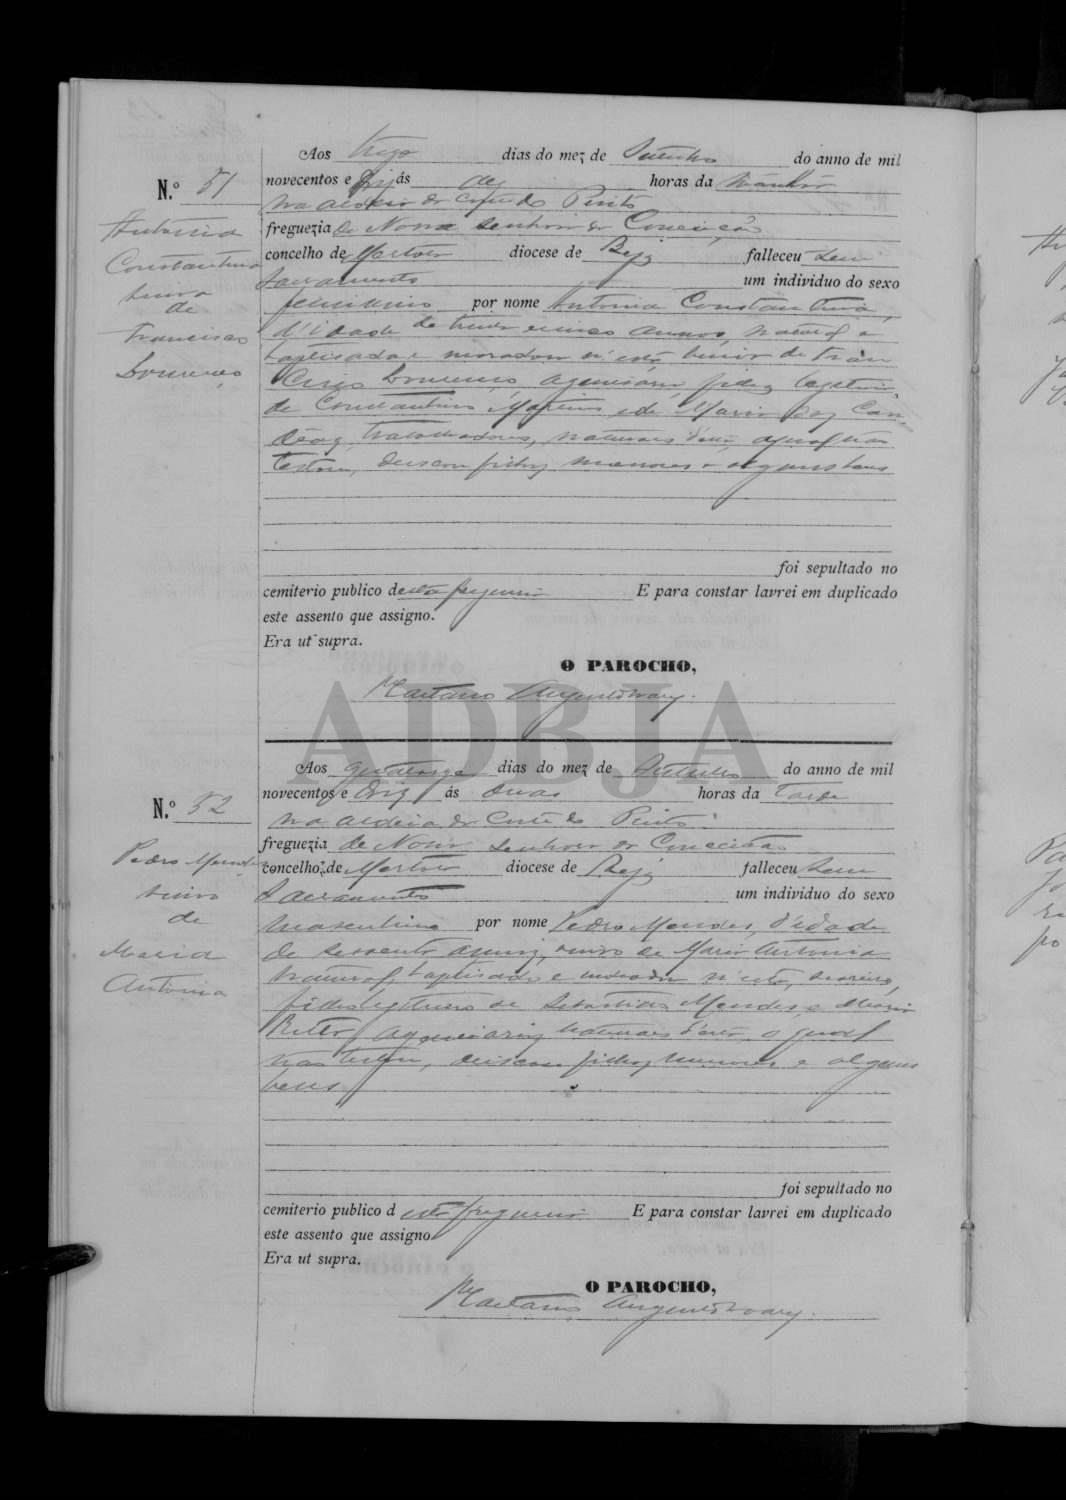 Aos treze dias do mez de Outubro do anno de mil
N.º 51
novecentos e dez ás dez horas da manhã
na aldeia da Corte do Pinto
freguezia de Nossa Senhora da Conceição
concelho de Mertola diocese de Beja falleceu sem
Sacramentos um individuo do sexo
femenino por nome Antonia Constantina,
Antonia
Constantina
de
Francisco
Lourenço
d'idade de trinta e cinco annos, natural e
baptisada e moradora n'esta, de Fran
cisco Lourenço, filha legitima
de Constantino Martins e de Maria das Can
deas, trabalhadores, naturaes d'esta, a qual não
testou, deixou filhos menores e alguns bens
foi sepultado no
cemiterio publico desta freguezia E para constar lavrei em duplicado
este assento que assigno.
Era ut supra.
O PAROCHO,
Caetano Augusto
ADBJA
Aos quatorze dias do mez de Outubro do anno de mil
N.º 52
novecentos e dez ás duas horas da tarde
na aldeia da Corte do Pinto
freguezia de Nossa Senhora da Conceição
concelho de Mertola diocese de Beja falleceu sem
Sacramentos um individuo do sexo
masculino por nome Pedro Mendes, d'idade
Pedro Mendes
viuvo
de
Maria
Antonia
de sessenta annos, viuvo de Maria Antonia
natural, baptisado e morador n'esta,
filho legitimo de Sebastião Mendes e Maria
naturaes d'esta, o qual
não testou, deixou filhos menores e alguns
bens
foi sepultado no
cemiterio publico d esta freguezia E para constar lavrei em duplicado
este assento que assigno.
Era ut supra.
O PAROCHO,
Caetano Augusto